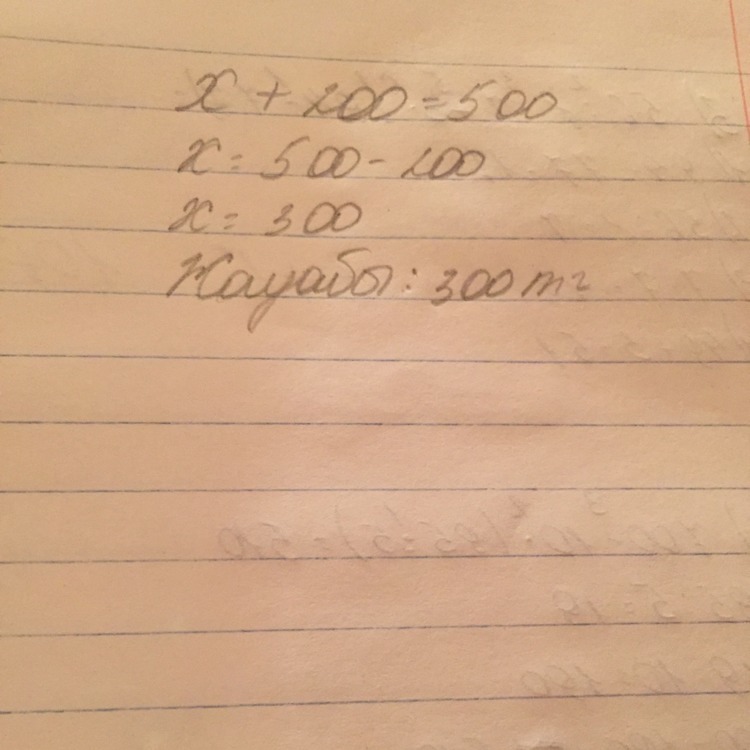 х + 200 = 500
х = 500 - 200
х = 300
Жауабы: 300 тг